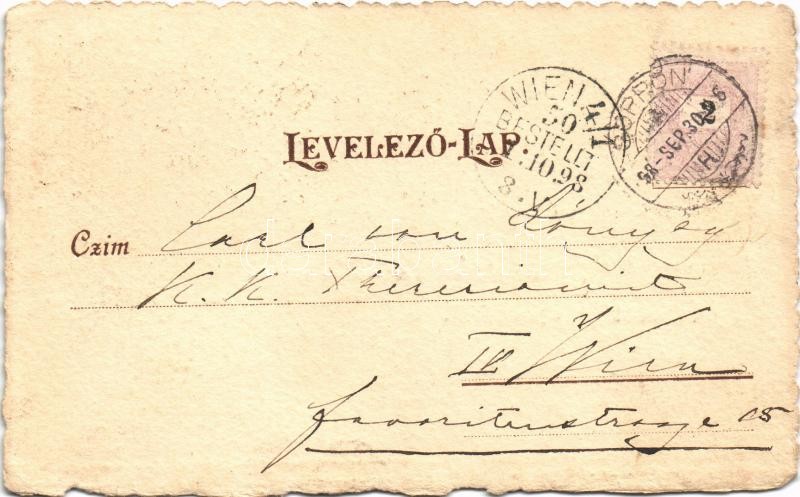 LEVELEZŐ-LAP.
WIEN 4/1
50
BESTELLT
1.10.98
8.V
SOPRON
98-SEP.30
2
Czim Carl von Könyey
K. K. Theresianist
IV Wien
favoritenstrasse 15